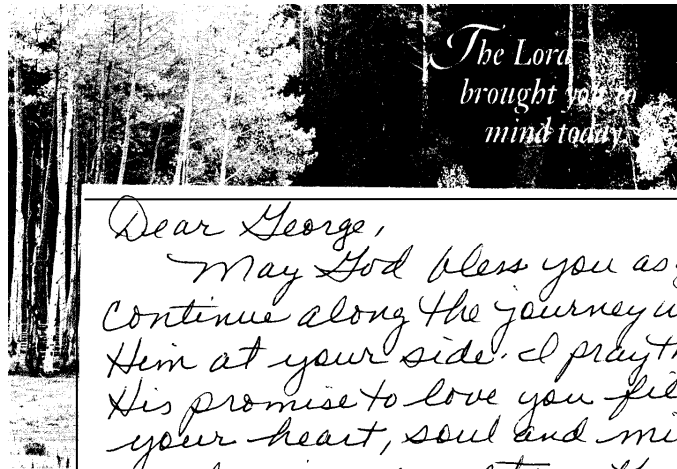 The Lord
brought you to
mind today.
Dear George,
May God bless you as
continue along the journey
Him at your side. I pray
His promise to love you
your heart, soul and